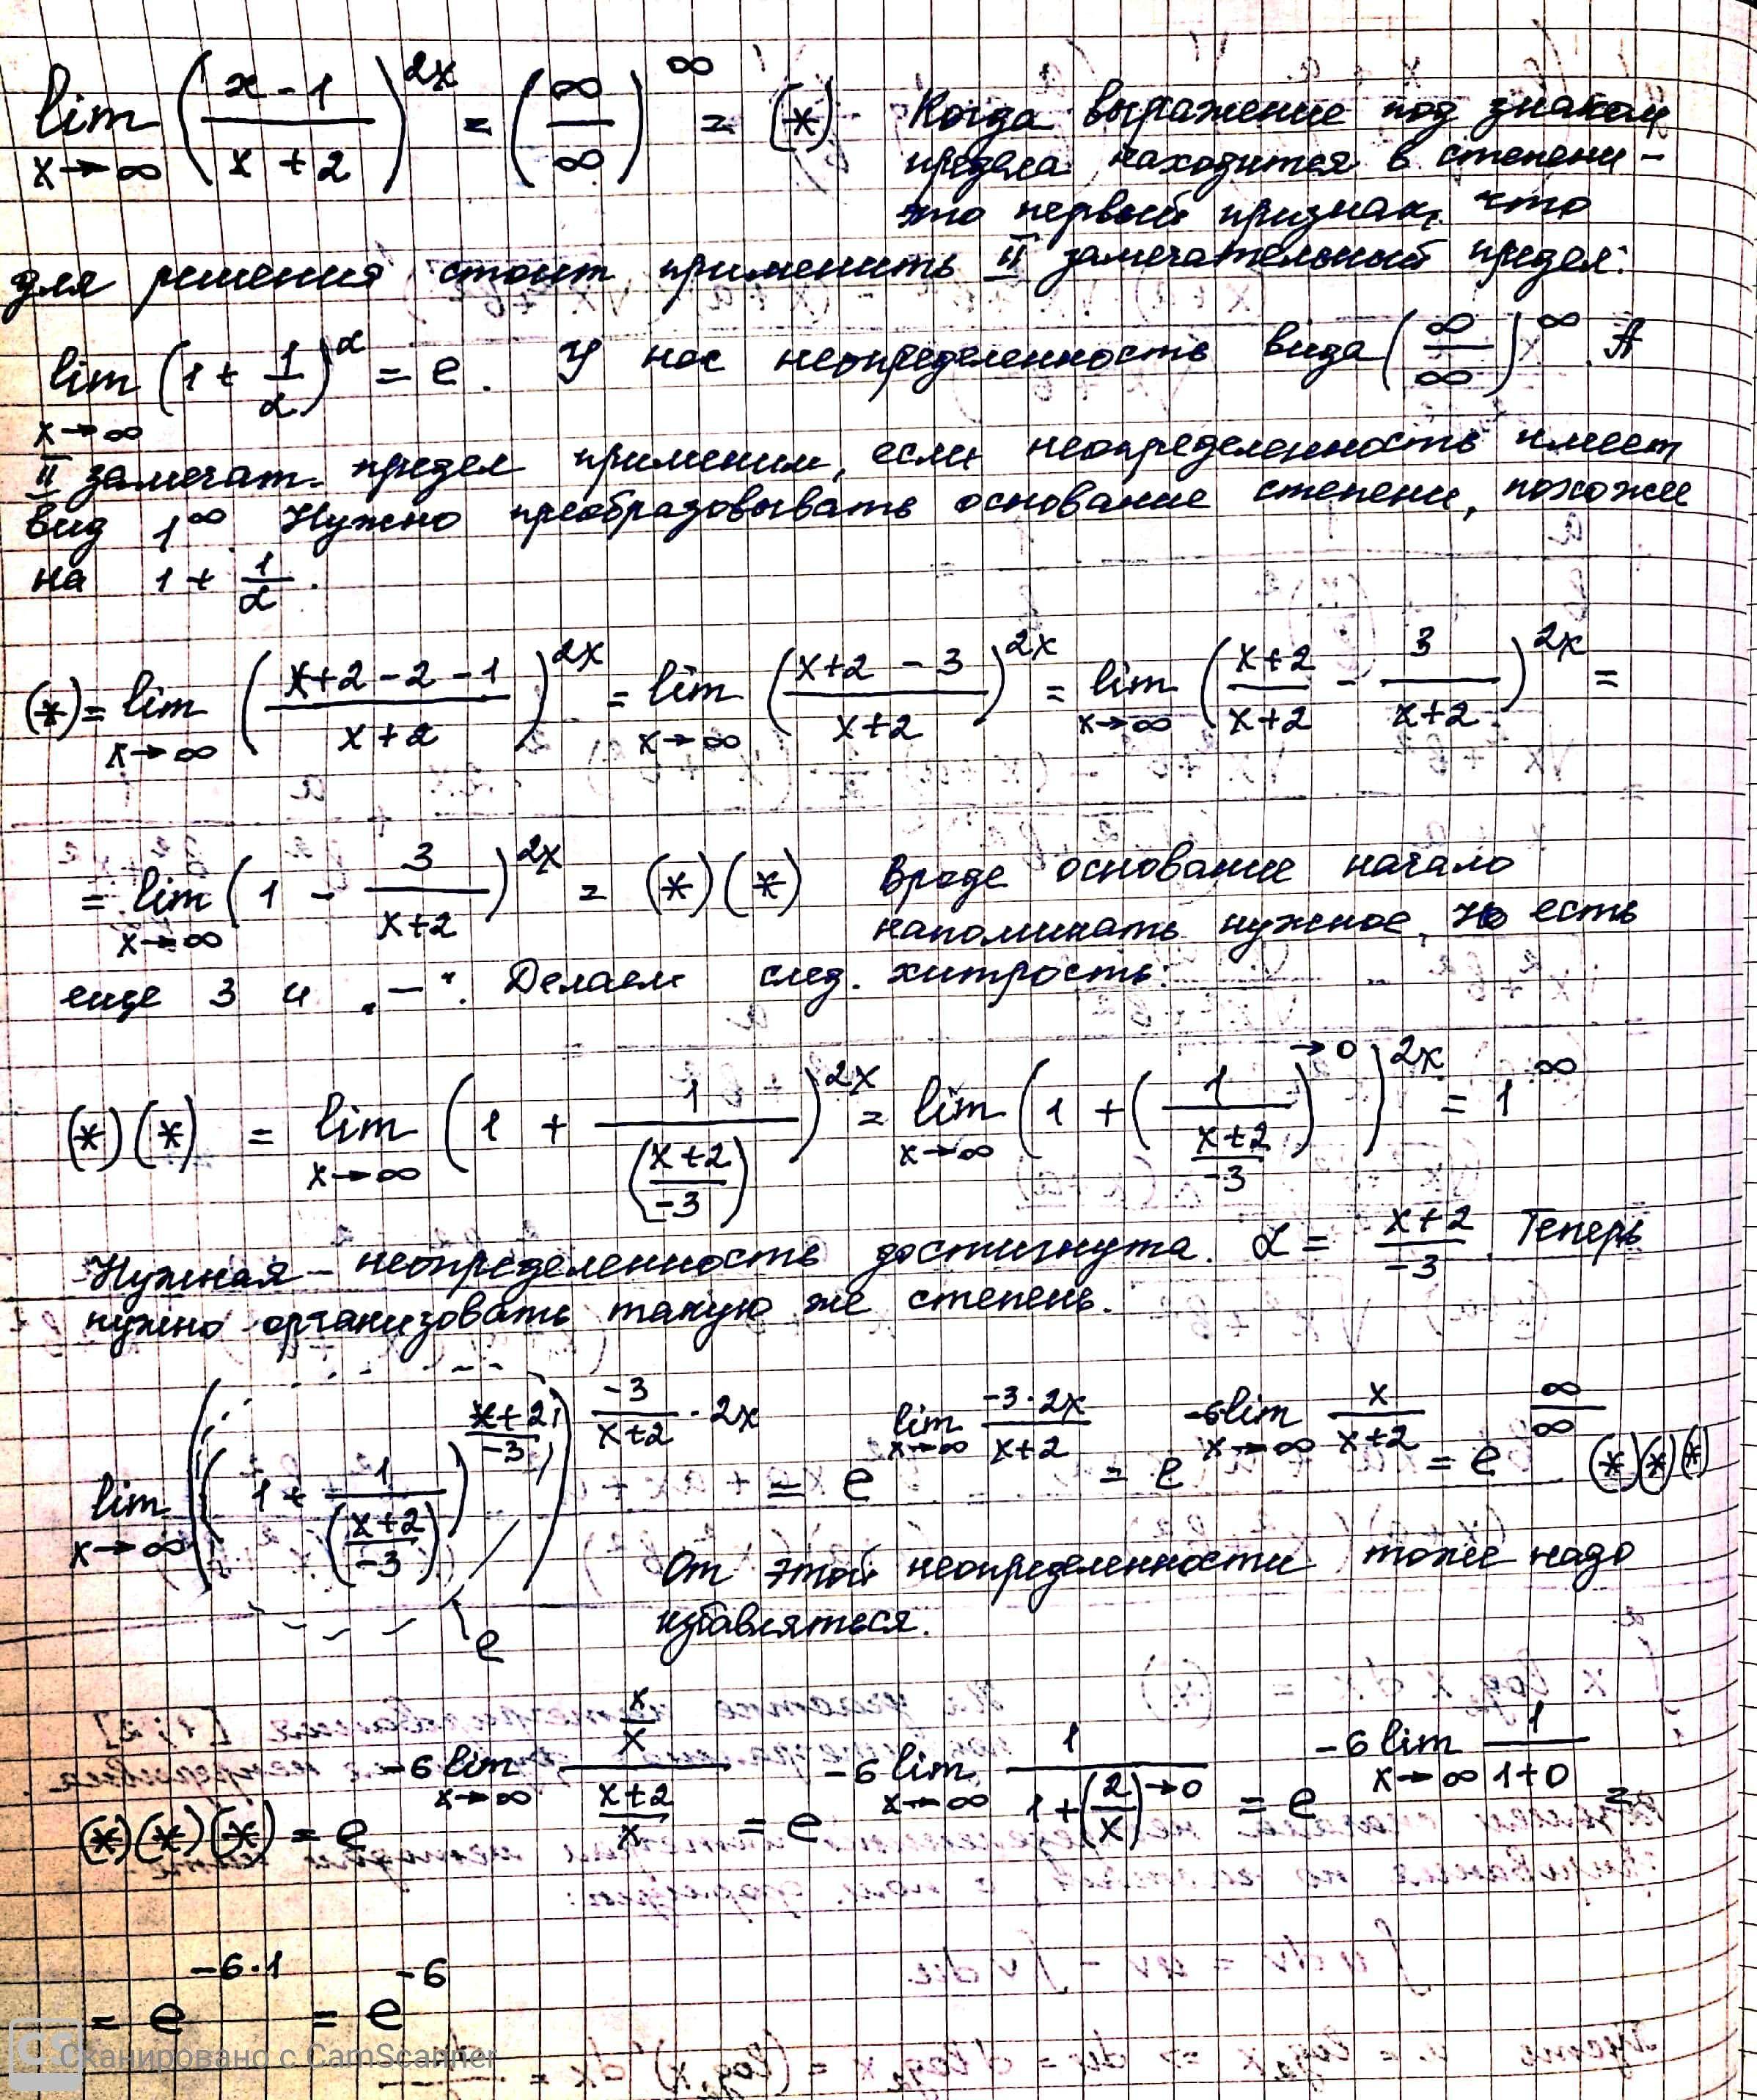 lim x→∞ ((x-1)/(x+2))^2x = (∞/∞)^∞ = (*) Когда выражение под знаком
предела находится в степени -
это первый признак, что
для решения стоит применить II замечательный предел:
lim x→∞ (1 + 1/α)^α = e. У нас неопределенность вида (∞/∞)^∞. А
II замечат. предел применим, если неопределенность имеет
вид 1^∞. Нужно преобразовывать основание степени, похожи
на 1 + 1/α.
(*) = lim x→∞ ((x+2-2-1)/(x+2))^2x = lim x→∞ ((x+2-3)/(x+2))^2x = lim x→∞ ((x+2)/(x+2) - 3/(x+2))^2x =
= lim x→∞ (1 - 3/(x+2))^2x = (*)(*) Вроде основание начало
напоминать нужное. Но есть
еще 3 и „—“. Делаем след. хитрость:
(*)(*) = lim x→∞ (1 + 1/((x+2)/-3))^2x = lim x→∞ (1 + (1/((x+2)/-3))^→0)^2x = 1^∞
Нужная - неопределенность достигнута. α = (x+2)/-3. Теперь
нужно организовать такую же степень.
lim x→∞ ((1 + 1/((x+2)/-3))^((x+2)/-3))^(-3/(x+2) · 2x) = e^(lim x→∞ (-3·2x)/(x+2)) = e^(-6 lim x→∞ x/(x+2)) = e^(∞/∞) (*)(*)(*)
e
От этой неопределенности тоже надо
избавляться.
(*)(*)(*) = e^(-6 lim x→∞ (x/x)/((x+2)/x)) = e^(-6 lim x→∞ 1/(1+(2/x)^→0)) = e^(-6 lim x→∞ 1/(1+0)) =
= e^(-6·1) = e^(-6)
CS Сканировано с CamScanner